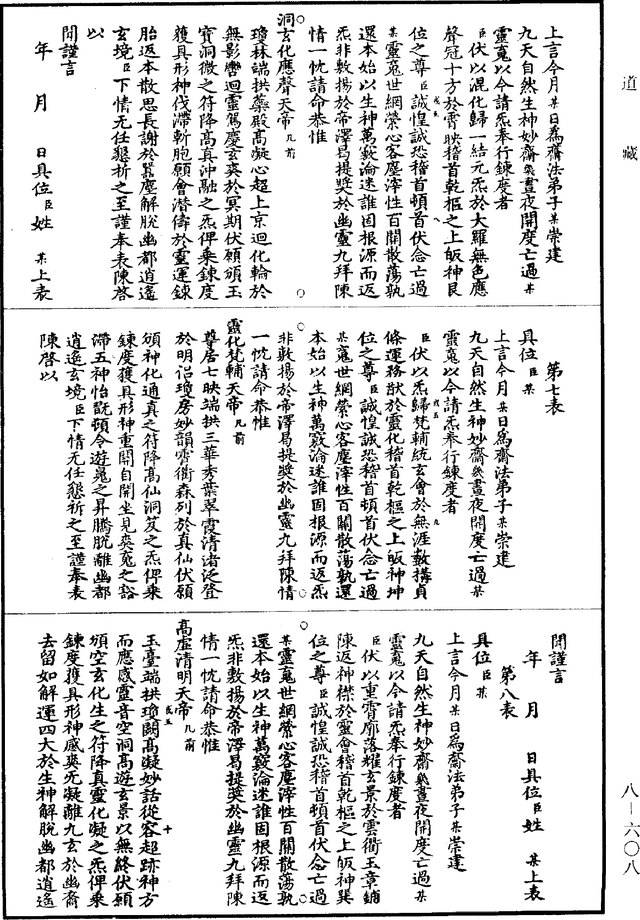 道藏
上言今月某日為齋法弟子某崇建
九天自然生神妙齋幾晝夜開度亡過某
靈䰟以今請炁奉行鍊度者
臣伏以混化歸一結元炁於大羅無色應
聲冠十方於霄映稽首乾樞之上皈神艮
位之尊臣誠惶誠恐稽首頓首伏念亡過
某靈䰟世網縈心客塵滓性百關散蕩孰
還本始以生神萬竅淪迷誰固根源而返
炁非敷揚於帝澤曷提奬於幽靈九拜陳
情一忱請命恭惟
洞玄化應聲天帝几前
瓊林端拱蘂殿高凝心超上京迴化輪於
無影轡迴靈駕慶玄爽於冥期伏願頒玉
寶洞微之符降高真沖融之炁俾乘鍊度
獲具形神伐滯斬胞願會濳儔於靈運鍊
胎返本散思長謝於囂塵解脫幽都逍遙
玄境臣下情无任懇祈之至謹奉表陳啓
以
聞謹言
年月日具位臣姓某上表
第七表
具位臣某
上言今月某日為齋法弟子某崇建
九天自然生神妙齋幾晝夜開度亡過某
靈䰟以今請炁奉行鍊度者
臣伏以炁歸梵輔統玄會於無涯數構貞
條運務猷於靈化稽首乾樞之上皈神坤
位之尊臣誠惶誠恐稽首頓首伏念亡過
某䰟世網縈心客塵滓性百關散蕩孰還
本始以生神萬竅淪迷誰固根源而返炁
非敷揚於帝澤曷提奬於幽靈九拜陳情
一忱請命恭惟
靈化梵輔天帝几前
尊居七映端拱三華秀葉翠霞清渚泛登
於明侣瓊房妙韻霄衢森列於真仙伏願
頒神化通真之符降高仙洞芨之炁俾乘
鍊度獲具形神重關自開坐見爽䰟之豁
滯五神怡翫頓令遊䰟之昇騰脫離幽都
逍遙玄境臣下情无任懇祈之至謹奉表
陳啓以
聞謹言
年月日具位臣姓某上表
第八表
具位臣某
上言今月某日為齋法弟子某崇建
九天自然生神妙齋幾晝夜開度亡過某
靈䰟以今請炁奉行鍊度者
臣伏以重霄廓落耀玄景於雲衢玉章鋪
陳返神襟於靈會稽首乾樞之上皈神巽
位之尊臣誠惶誠恐稽首頓首伏念亡過
某靈䰟世網縈心客塵滓性百關散蕩孰
還本始以生神萬竅淪迷誰固根源而返
炁非敷揚於帝澤曷提奬於幽靈九拜陳
情一忱請命恭惟
高虛清明天帝几前
玉臺端拱瓊闕高凝妙話從容超跡神方
而應感靈音空洞高遊玄景以無終伏願
頒空玄化生之符降真靈化凝之炁俾乘
鍊度獲具形神感爽旡凝離九玄於幽裔
去留如解運四大於生神解脫幽都逍遙
八—六〇八